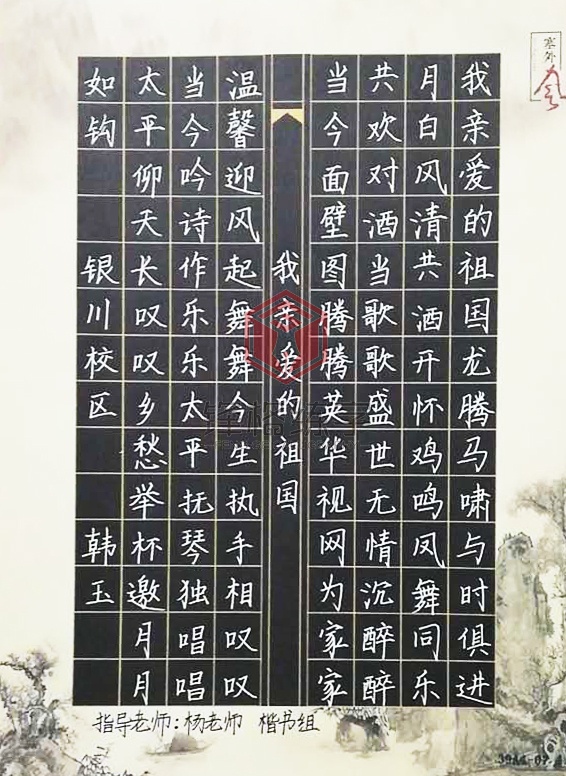 塞外
我亲爱的祖国龙腾马啸与时俱进
月白风清共酒开怀鸡鸣凤舞同乐
共欢对酒当歌歌盛世无情沉醉醉
当今面壁图腾腾英华视网为家家
我亲爱的祖国
温馨迎风起舞舞今生执手相叹叹
当今吟诗作乐乐太平抚琴独唱唱
太平仰天长叹叹乡愁举杯邀月月
如钩 银川校区 韩玉
指导老师：杨老师 楷书组